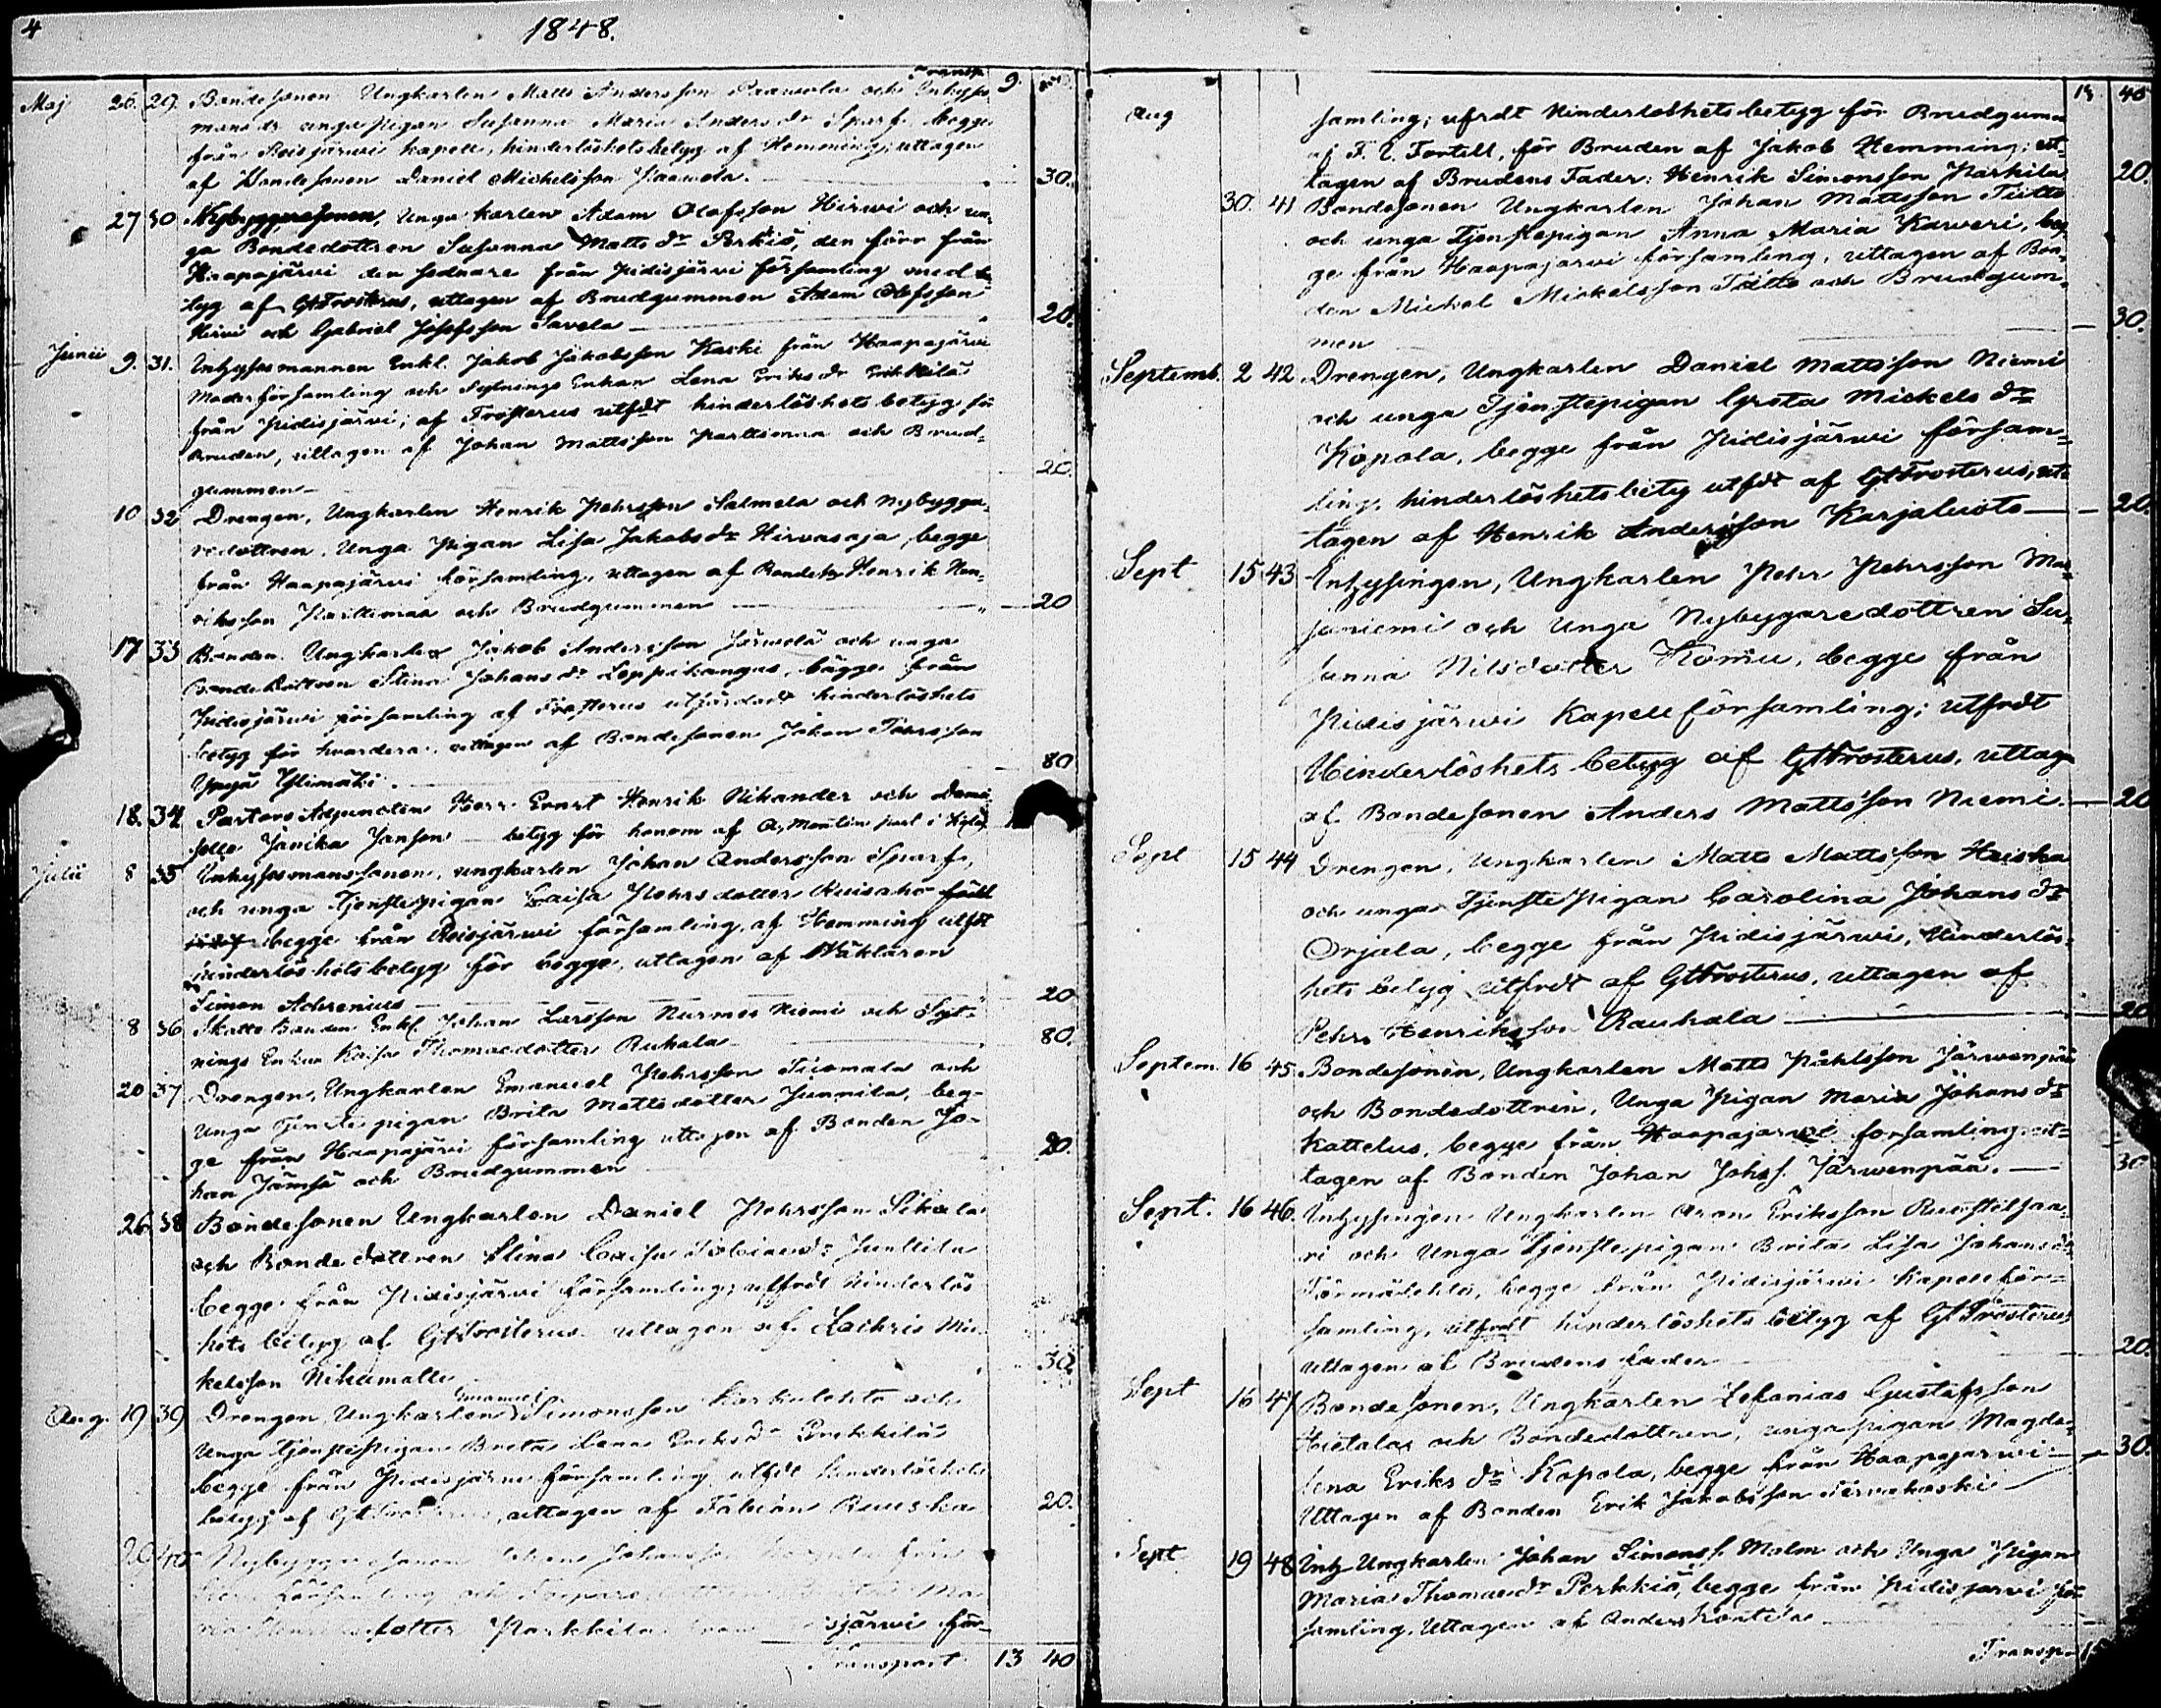 4
1848.
Transp 9.
Maj 26. 29. Bondesonen Ungkarlen Matts Andersson Paavola och Inhyses
mans dr unga pigan Susanna Maria Anders dr Sparf, begge
från Reisjärwi kapell, hinderlöshetsbetyg af Hemming; uttagen
af Bondesonen Daniel Michelsson Paawola. 30.
27 30 Nybyggaresonen, Unga karlen Adam Olofsson Hirwi och un-
ga Bondedottren Susanna Matts dr Perkiö, den förr från
Haapajärwi den sednare från Pidisjärwi församling med be
tyg af GFrosterus, uttagen af Brudgummen Adam Olofsson
Hirwi och Gabriel Josefsson Savela 20.
Junii 9. 31. Inhysesmannen Enkl. Jakob Jakobsson Kaski från Haapajärwi
Moderförsamling och Sytnings Enkan Lena Eriks dr Erkkilä
från Pidisjärwi; af Frosterus utfdt hinderlöshets betyg för
Bruden, uttagen af Johan Mattsson Parttimaa och Brud-
gummen 20.
10 32 Drengen, Ungkarlen Henrik Pehrsson Salmela och Nybygga-
redottren, Unga Pigan Lisa Jakobs dr Hirvasaja, begge
från Haapajärwi församling, uttagen af Bonden Henrik Hen-
riksson Parttimaa och Brudgummen 20
17 33 Bonden Ungkarlen Jakob Andersson Järwelä och unga
Bondedottren Stina Johans dr Leppikangas, bägge från
Pidisjärwi församling af Frosterus utfärdade hinderlöshets
betyg för hvardera, uttagen af Bondesonen Johan
Yppyä Ylimäki. 80
18. 34 Pastors Adjuncten Herr Ernst Henrik Nikander och Dami-
selle Janika Janson betyg för honom af
Julii 8 35 Inhysesmanssonen, ungkarlen Johan Andersson Sparf,
och unga Tjenstepigan Caisa Pehrs dotter Kuisaho
begge från Reisjärwi församling, af Hemming utfdt
hinderlöshetsbetyg för begge, uttagen af Mäklaren
Simon Achrenius 20
8 36 Skatte Bonden Enkl Johan Larsson Nurmes Niemi och Syt-
nings Enkan Kaisa Thomaedotter Ruhala 80.
20 37 Drengen, Ungkarlen Emanuel Pehrsson Tiiomala och
Unga Tjenstepigan Brita Mattsdotter Junnila, beg-
ge från Haapajärwi församling uttagen af Bonden Jo-
han Jämsä och Brudgummen 20.
26. 38 Bondesonen Ungkarlen Daniel Pehrsson Sikala
och Bonde dottren Stina Caisa Tobiae dr Junttila
begge från Pidisjärwi församling, utfrdt hinderlös
hets betyg af GFrosterus uttagen af Zachris Mic-
kelsson Nihumalle 30
Aug. 19 39 Drengen, Ungkarlen Emanuel Simonsson Karkulehto och
Unga tjenstepigan Breta Lena Eriks dr Erkkilä
begge från Pidisjärwi församling utfdt hinderlöshets
betyg af GFrosterus, uttagen af Fabian Ruuska 20.
20 40 Nybyggaresonen Johansson från
församling och
dotter Parkkila järwi för-
Transport 13 40
13 40
Aug samling; ufrdt Hinderlöshetsbetyg för Brudgumen
af F. E. Fortell, för Bruden af Jakob Hemming; ut-
tagen af Brudens Fader: Henrik Simonsson Parkila 20.
30. 41 Bondesonen Ungkarlen Johan Mattsson Tiitto
och unga Tjenstepigan Anna Maria Karweri, beg-
ge från Haapajarwi församling, uttagen af Bon-
den Mickel Mickelsson Tiitto och Brudgum-
men 30.
Septemb. 2 42 Drengen, Ungkarlen Daniel Mattsson Niemi
och unga Tjenstepigan Greta Mickels dr
Kopola, begge från Pidisjärwi försam-
ling, hinderlöshetsbetyg utfdt af GFrosterus, ut-
tagen af Henrik Andersson Karjaluoto 20.
Sept 15 43 Inhysingen, Ungkarlen Pehr Pehrsson Mar-
janiemi och Unga Nybygaredottren Su-
sanna Nilsdotter Komu, begge från
Pidisjärwi Kapellförsamling; utfrdt
Hinderlöshets betyg af GFrosterus, uttage
af Bondesonen Anders Mattsson Niemi. 20
Sept 15 44 Drengen, Ungkarlen Matts Mattsson Haiska
och unga TjenstePigan Carolina Johans dr
Orjala, begge från Pidisjärwi, Hinderlös-
hets betyg utfrdt af GFrosterus, uttagen af
Pehr Henriksson Rauhala 20
Septem. 16 45. Bondesonen, Ungkarlen Matts Påhlsson Järwenpää
och Bondedottren, Unga Pigan Maria Johans dr
Kattelus, begge från Haapajarwi forsamling, ut-
tagen af Bonden Johan Johss. Järwenpää. 30
Sept. 16 46. Inhysingen Ungkarlen Aron Eriksson
ri och Unga Tjenstepigan Brita Lisa Johans dr
Törmälehto, begge från Pidisjärwi Kapellför-
samling, utfrdt hinderlöshets betyg af GFrosterus
uttagen af Brudens fader 20.
Sept 16 47 Bondesonen, Ungkarlen Zefanias Gustafsson
Hietala och Bondedottren, unga pigan Magda-
lena Eriks dr Kopola, begge från Haapajarwi 30.
Uttagen af Bonden Erik Jakobsson Tervakoski
Sept 19 48 Inh Ungkarlen Johan Simonss. Malm och Unga Pigan
Maria Thomae dr Perkkiö, begge från Pidisjarwi för
samling, Uttagen af Anders Kontila
Transp. 15